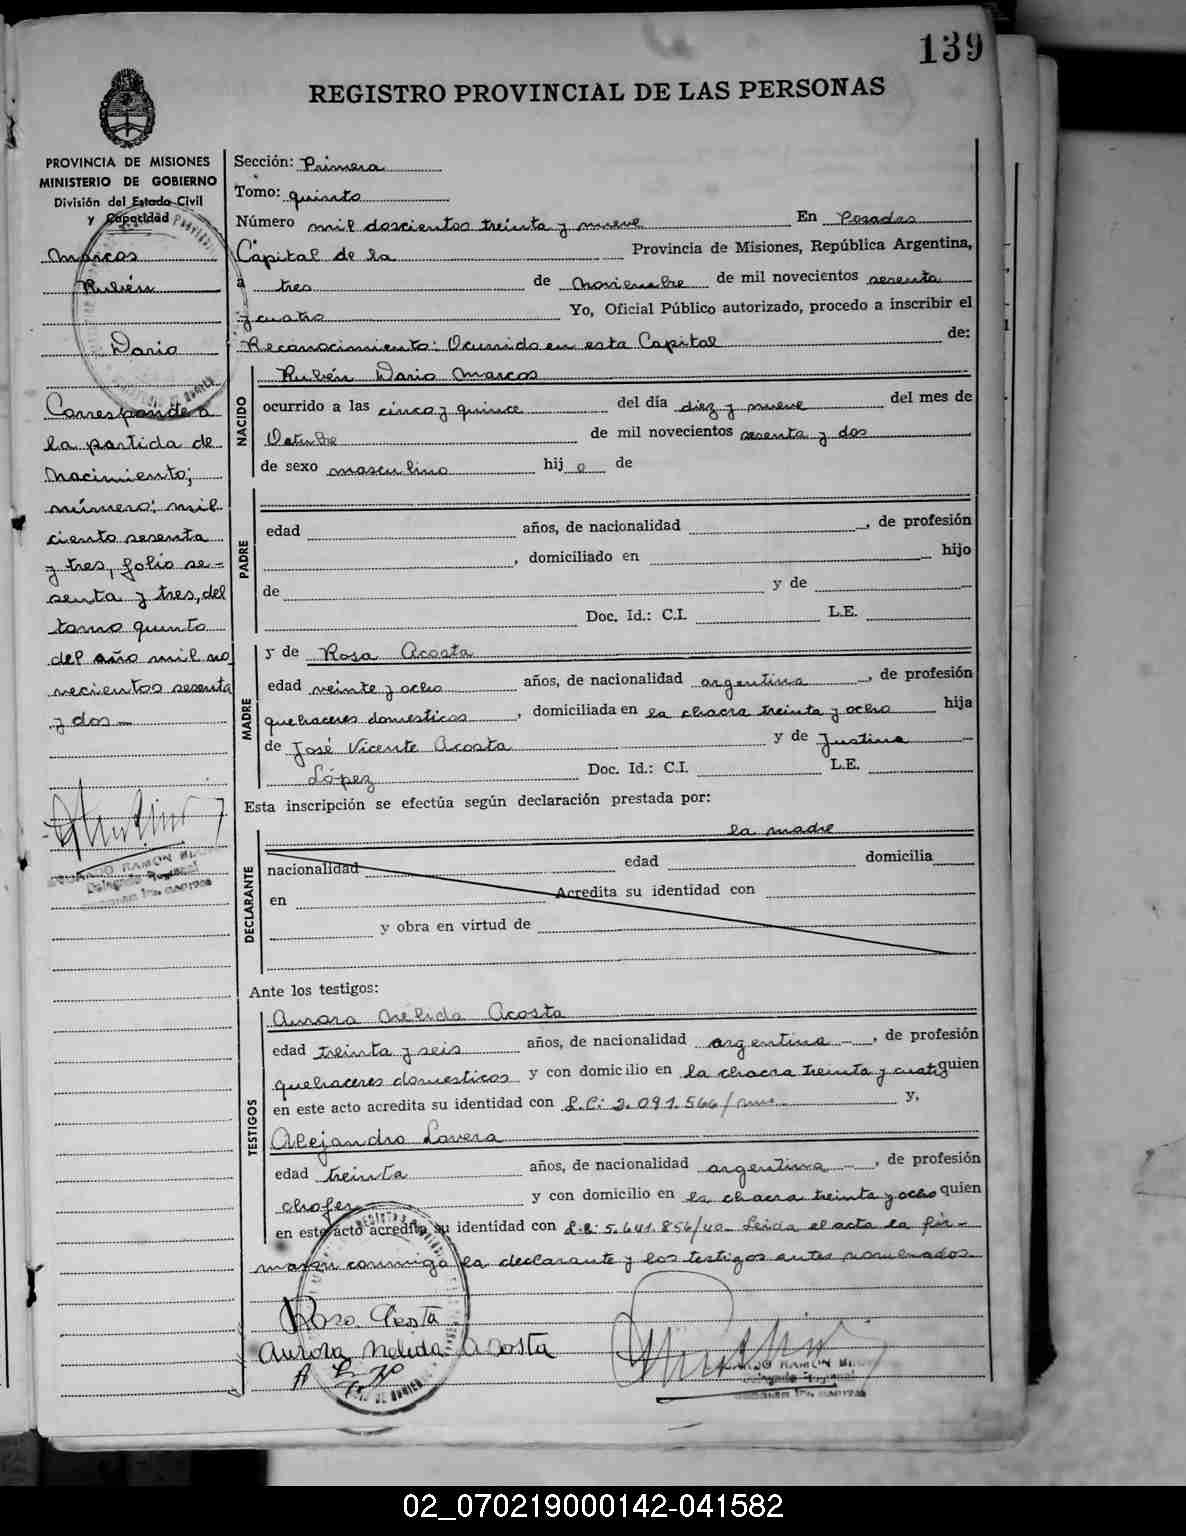 139
REGISTRO PROVINCIAL DE LAS PERSONAS
PROVINCIA DE MISIONES
MINISTERIO DE GOBIERNO
División del Estado Civil
y Capacidad
Marcos
Rubén
Dario
Corresponde a
la partida de
Nacimiento;
número: mil
ciento sesenta
y tres, folio se-
senta y tres, del
tomo quinto
del año mil no
vecientos sesenta
y dos
RAMON
Delegado Regional
Sección: Primera
Tomo: quinto
Número mil doscientos treinta y nueve En Posadas
Capital de la Provincia de Misiones, República Argentina,
a tres de Noviembre de mil novecientos sesenta
y cuatro Yo, Oficial Público autorizado, procedo a inscribir el
Reconocimiento: Ocurrido en esta Capital de:
NACIDO
Rubén Dario Marcos
ocurrido a las cinco y quince del día diez y nueve del mes de
Octubre de mil novecientos sesenta y dos
de sexo masculino hij o de
PADRE
edad años, de nacionalidad , de profesión
, domiciliado en hijo
de y de
Doc. Id.: C.I. L.E.
MADRE
y de Rosa Acosta
edad veinte y ocho años, de nacionalidad argentina , de profesión
quehaceres domesticos , domiciliada en la chacra treinta y ocho hija
de José Vicente Acosta y de Justina
López Doc. Id.: C.I. L.E.
Esta inscripción se efectúa según declaración prestada por:
DECLARANTE
la madre
nacionalidad edad domicilia
en Acredita su identidad con
y obra en virtud de
Ante los testigos:
TESTIGOS
Aurora Nelida Acosta
edad treinta y seis años, de nacionalidad argentina , de profesión
quehaceres domesticos y con domicilio en la chacra treinta y cuatro quien
en este acto acredita su identidad con L.C: 2.091.566/ y,
Alejandro Lovera
edad treinta años, de nacionalidad argentina , de profesión
chofer y con domicilio en la chacra treinta y ocho quien
en este acto acredita su identidad con L.E: 5.641.856/ Leida el acta la fir-
man conmigo la declarante y los testigos antes nombrados
Rosa Acosta
Aurora Nelida Acosta
RAMON
Delegado Regional
02_070219000142-041582